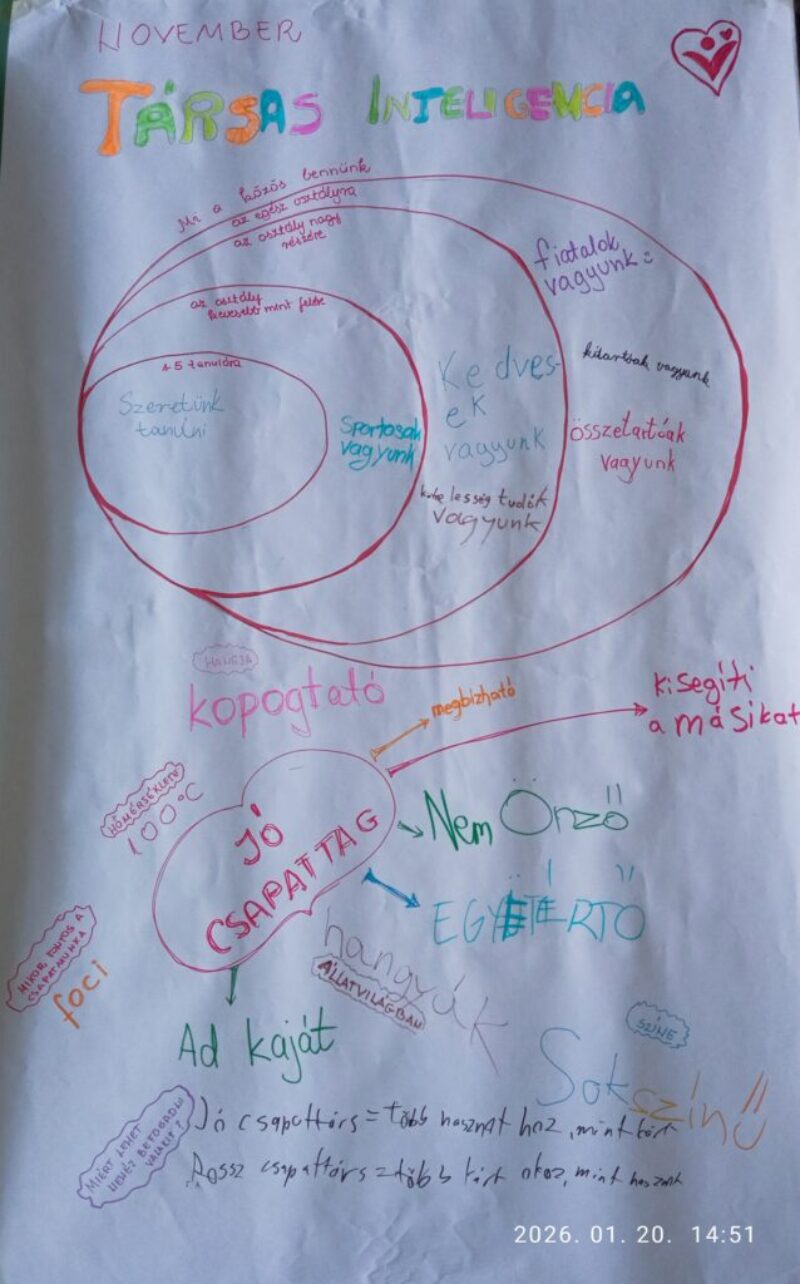 NOVEMBER
TÁRSAS INTELIGENCIA
Mi a közös bennünk
az egész osztályra
az osztály nagy
részére
az osztály
kevesebb mint felére
4-5 tanulóra
Szeretünk
tanulni
Sportosak
vagyunk
Kedves-
ek
vagyunk
lesség tudók
vagyunk
fiatalok
vagyunk
kitartóak vagyunk
összetartóak
vagyunk
HANGJA
kopogtató
megbízható
kisegíti
a másikat
HŐMÉRSÉKLETE
100°C
JÓ
CSAPATTAG
Nem Önző
EGYETÉRTŐ
MIKOR FONTOS A
CSAPATMUNKA
foci
hangyák
ÁLLATVILÁGBAN
Ad kaját
SZÍNE
Sokszínű
MIÉRT LEHET
NEHÉZ BEFOGADNI
VALAKIT?
Jó csapattárs = több hasznot hoz, mint kárt
Rossz csapattárs = több kárt okoz, mint hasznot
2026. 01. 20. 14:51